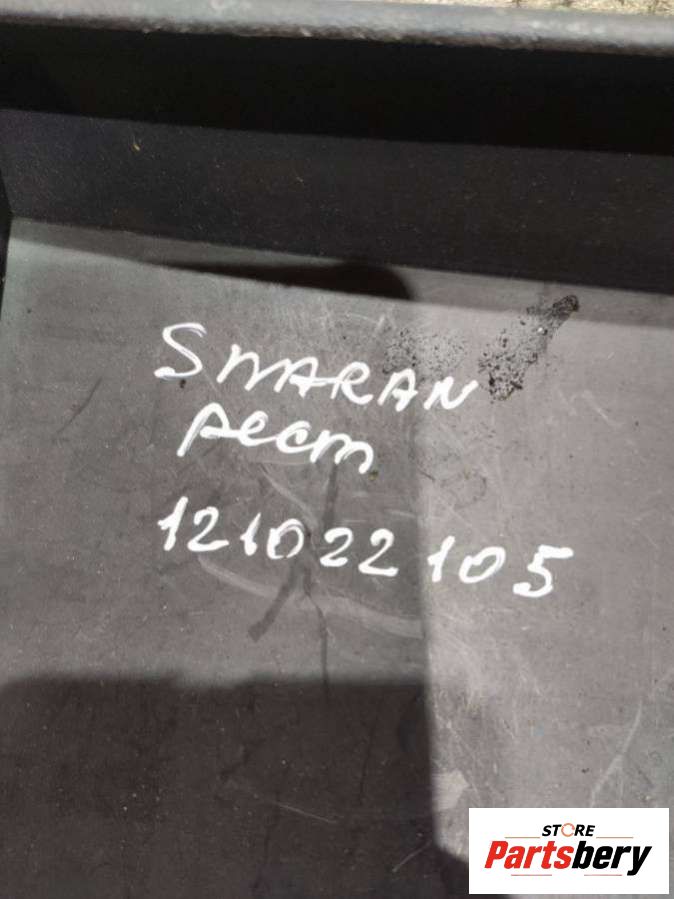 SHARAN
рест
121022105
STORE
Partsbery